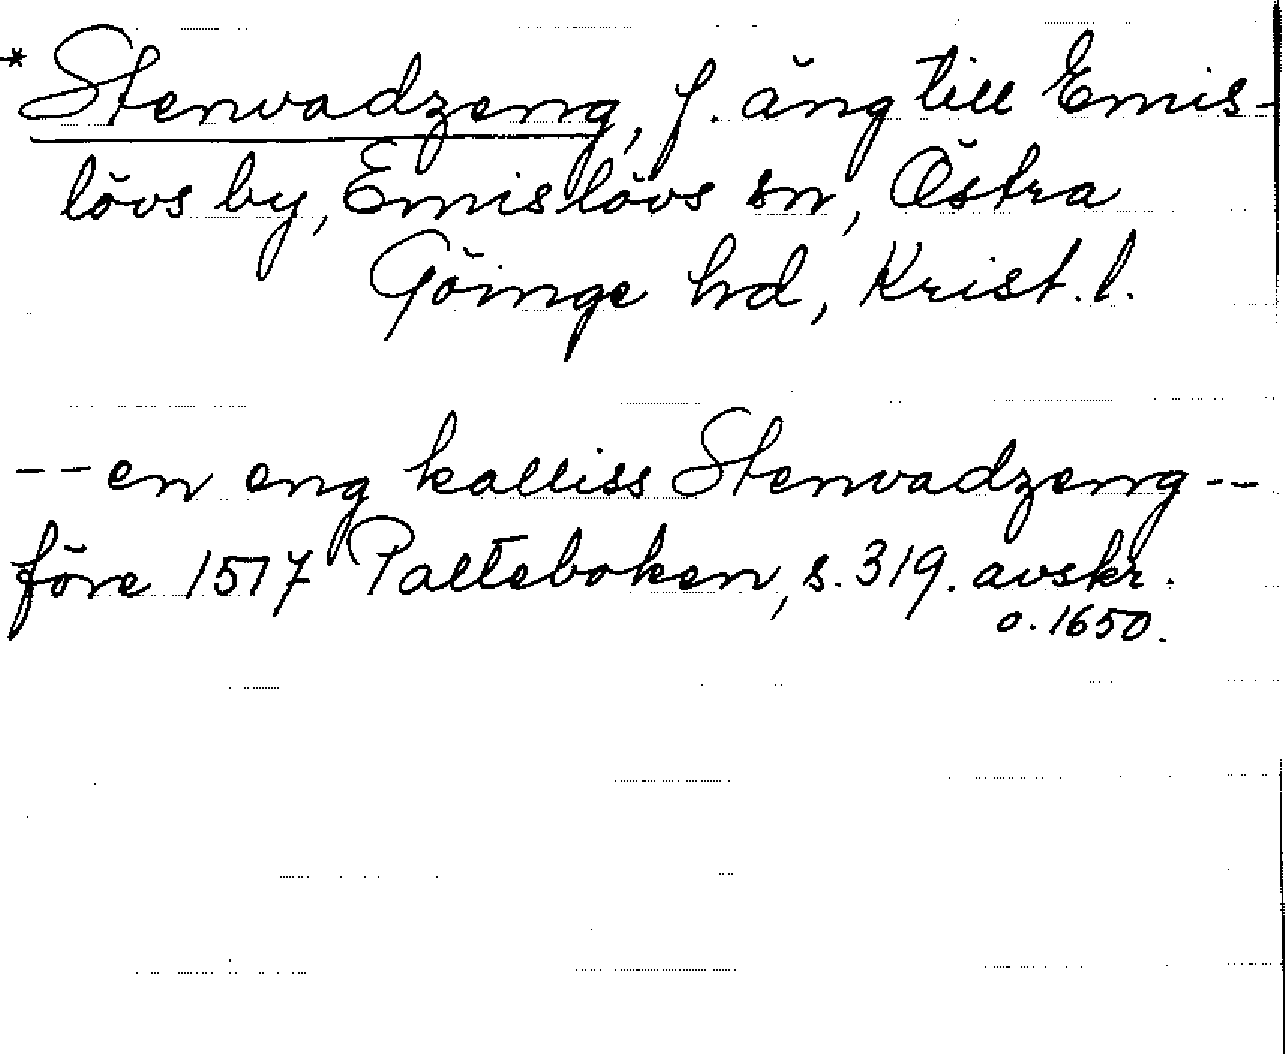 * Stenvadzeng, f. äng till Emis-
lövs by, Emislövs sn, Östra
Göinge hd, Krist. l.
-- en eng kalliss Stenvadzeng --
före 1517 Palteboken, s. 319. avskr.
o. 1650.